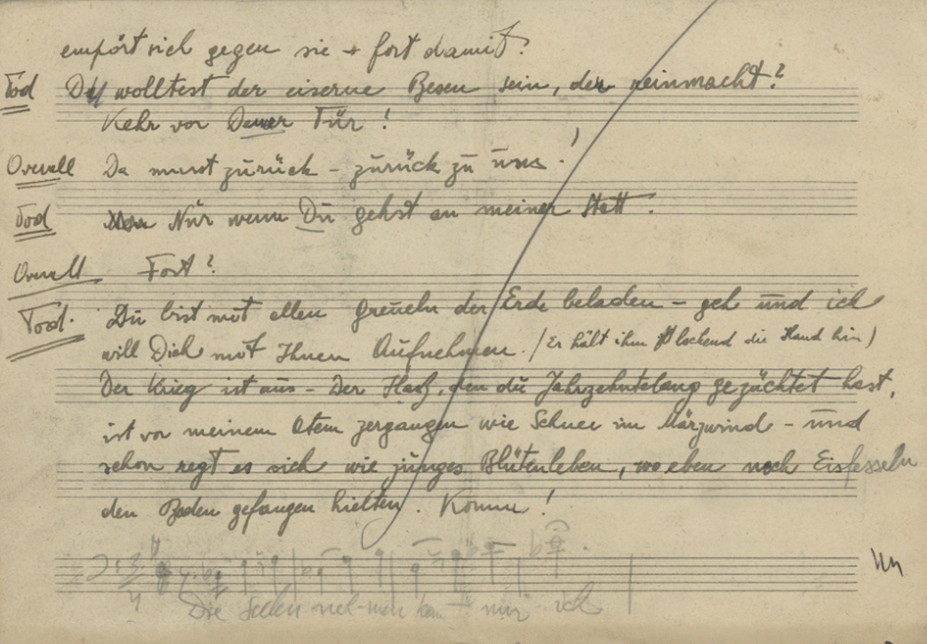 empört sich gegen sie + fort damit?
Tod Du wolltest der eiserne Besen sein, der reinmacht?
Kehr vor Deiner Tür!
Overall Da musst zurück - zurück zu uns!
Tod Nur wenn Du gehst an meiner Statt.
Overall Fort?
Tod. Du bist mit allen Greueln der Erde beladen - geh und ich
will Dich mit Ihnen Aufnehmen. (Er hält ihm lockend die Hand hin)
Der Krieg ist aus - Der Haß, den du Jahrzehntelang gezüchtet hast,
ist vor meinem Atem zergangen wie Schnee im Märzwind - und
schon regt es sich wie junges Blütenleben, wo eben noch Eisfesseln
den Boden gefangen hielten. Komm!
Die Seelen neh-men kann nur ich